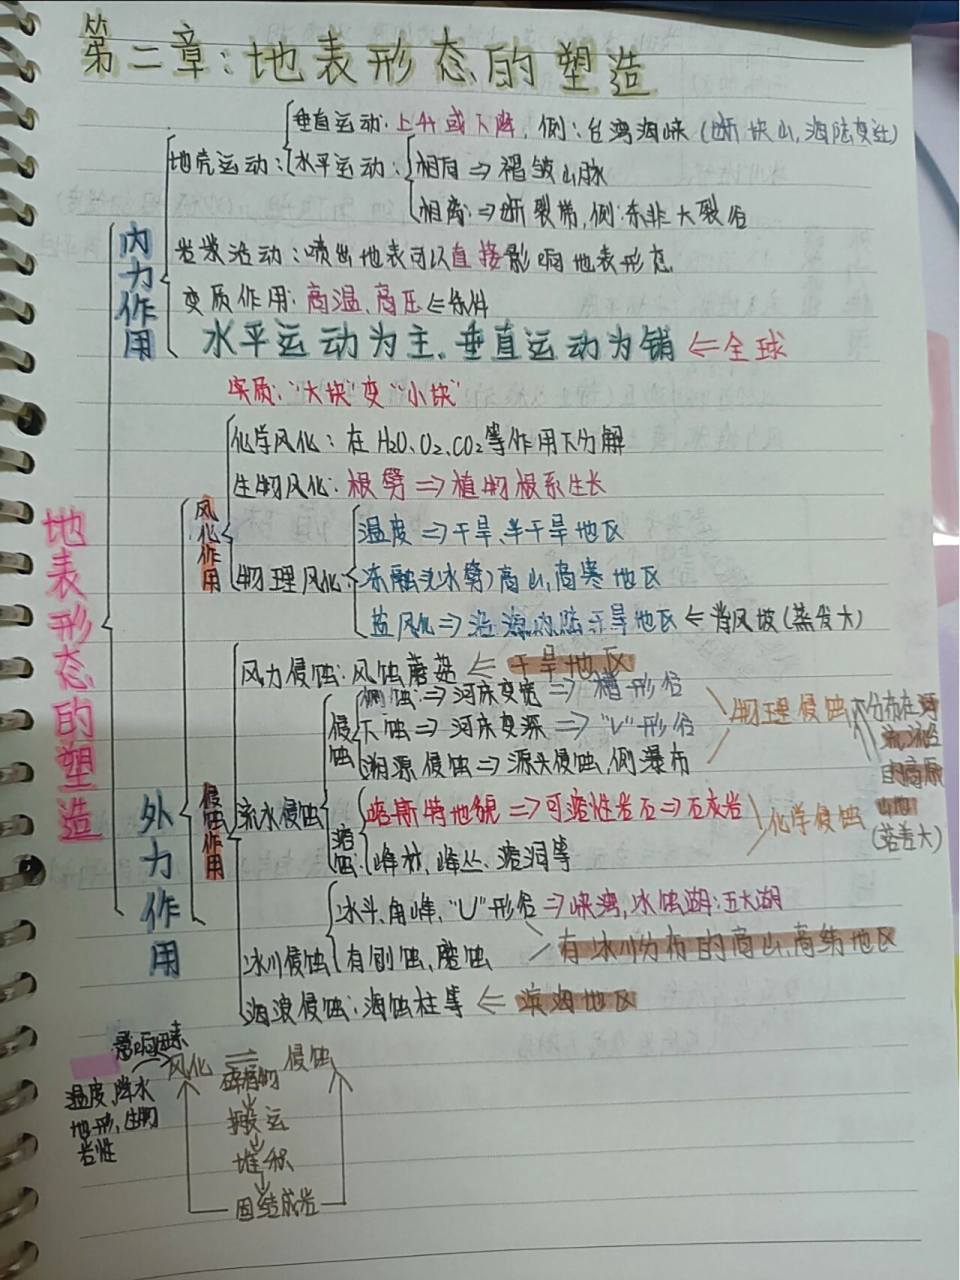 第二章:地表形态的塑造
垂直运动:上升或下降,例:台湾海峡(断块山,海陆变迁)
地壳运动:水平运动:相向⇒褶皱山脉
相离:⇒断裂带,例:东非大裂谷
内力作用
岩浆活动:喷出地表可以直接影响地表形态
变质作用:高温、高压⇐条件
水平运动为主、垂直运动为辅⇐全球
实质:“大块”变“小块”
化学风化:在H2O、O2、CO2等作用下分解
生物风化:根劈⇒植物根系生长
风化作用
温度⇒干旱、半干旱地区
物理风化
冻融(冰劈)高山,高寒地区
盐风化⇒沿海内陆干旱地区⇐背风坡(蒸发大)
地表形态的塑造
风力侵蚀:风蚀蘑菇⇐干旱地区
侧蚀:⇒河床变宽⇒槽形谷
侵蚀
下蚀⇒河床变深⇒“V”形谷
溯源侵蚀⇒源头侵蚀,例瀑布
物理侵蚀
(落差大)
外力作用
侵蚀作用
流水侵蚀
喀斯特地貌⇒可溶性岩石⇒石灰岩
溶蚀:
峰林,峰丛、溶洞等
化学侵蚀
冰斗、角峰,“U”形谷⇒峡湾,冰蚀湖:五大湖
冰川侵蚀
有刨蚀、磨蚀
有冰川分布的高山,高纬地区
海浪侵蚀:海蚀柱等⇐滨海地区
影响因素
风化
侵蚀
碎屑物
温度,降水
地形,生物
岩性
搬运
堆积
固结成岩